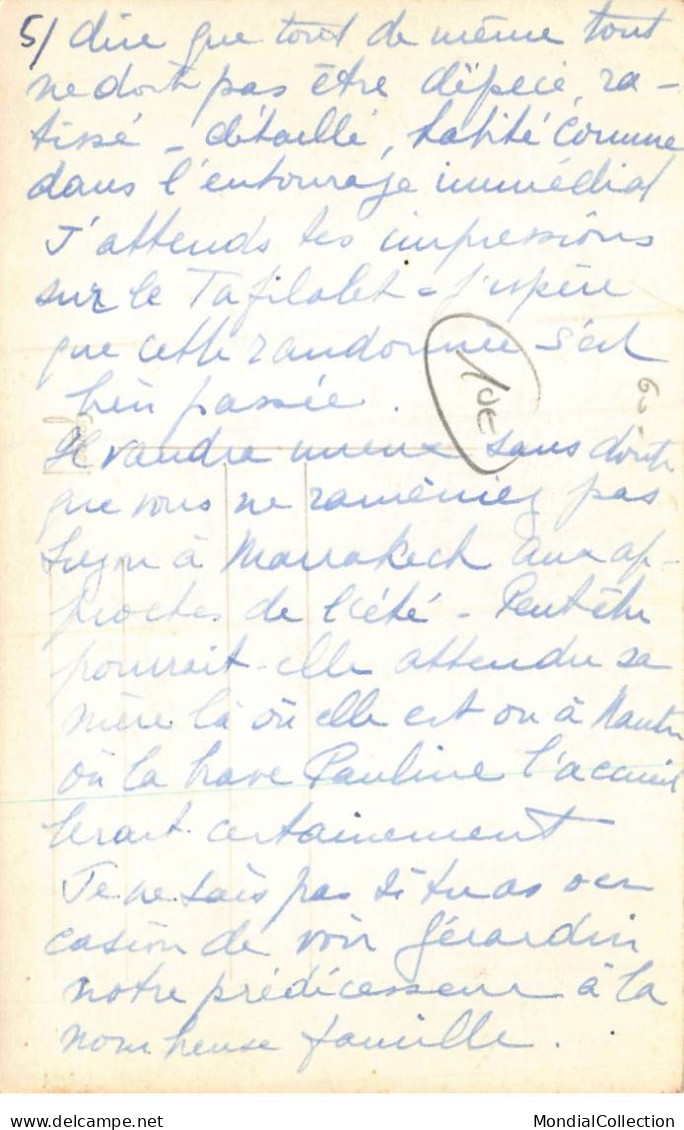 5/ dire que tout de même tout
ne doit pas être dépecé, ra-
tissé - détaillé, comme
dans l'entourage immédiat
J'attends tes impressions
sur le Tafilalet - j'espère
que cette randonnée s'est
bien passée.
Il vaudra mieux sans doute
que vous ne rameniez pas
à Marrakech aux ap-
proches de l'été - Peut être
pourrait-elle attendre sa
mère là où elle est ou à
où la brave Pauline l'accueil
lerait certainement
Je ne sais pas si tu as oc
casion de voir Gérardin
notre prédécesseur à la
nombreuse famille.
6-
MondialCollection